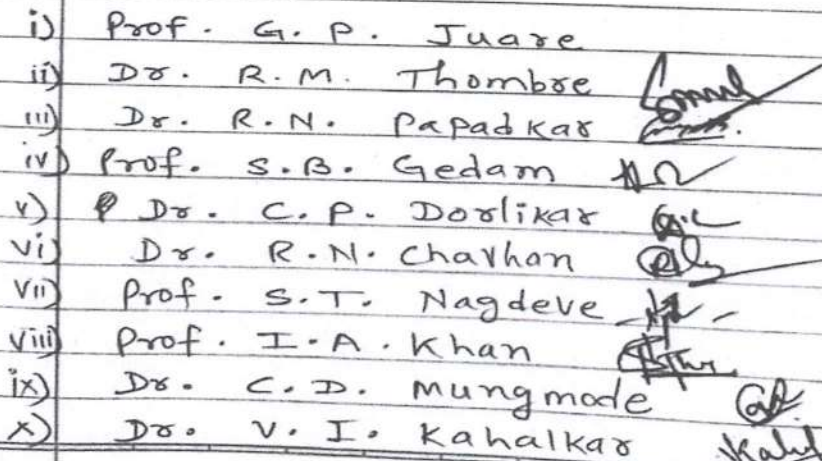 i) Prof. G. P. Juare
ii) Dr. R. M. Thombre
iii) Dr. R. N. Papadkar
iv) Prof. S. B. Gedam
v) Dr. C. P. Dorlikar
vi) Dr. R. N. Chavhan
vii) Prof. S. T. Nagdeve
viii) Prof. I. A. Khan
ix) Dr. C. D. Mungmode
x) Dr. V. I. Kahalkar